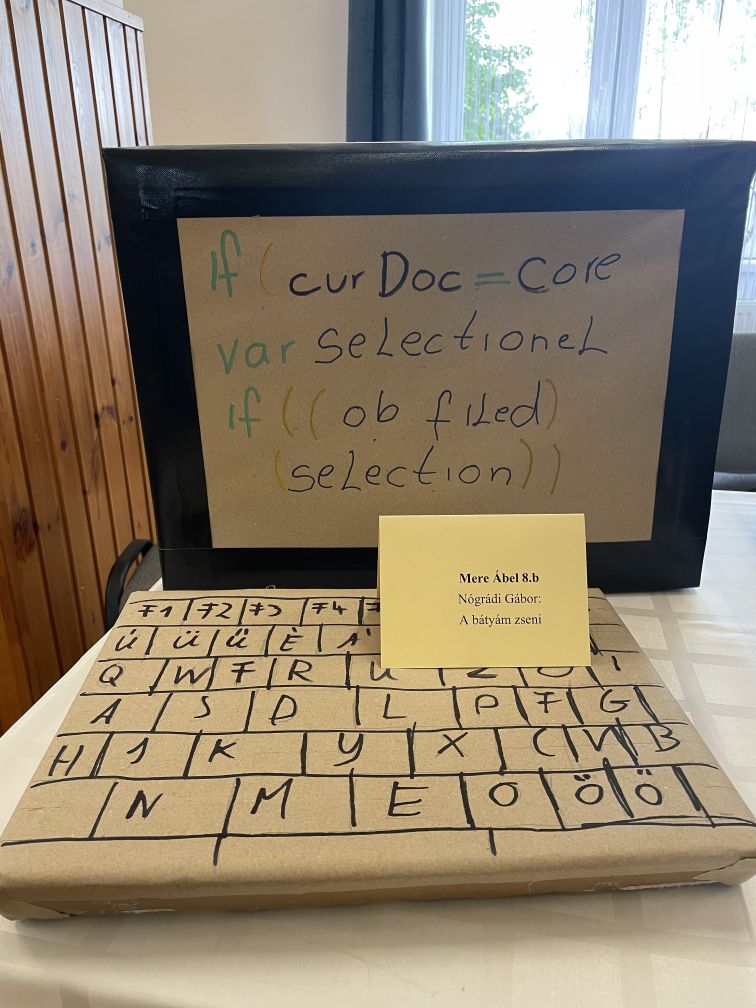 if ( cur Doc = Core
var selectionel
if (( ob filed)
(selection))
Mere Ábel 8.b
Nógrádi Gábor:
A bátyám zseni
F1 F2 F3 F4
Ú Ü Ű É Á
Q W F R U Z O I
A S D L P F G
H J K Y X C V B
N M E O Ö Ő